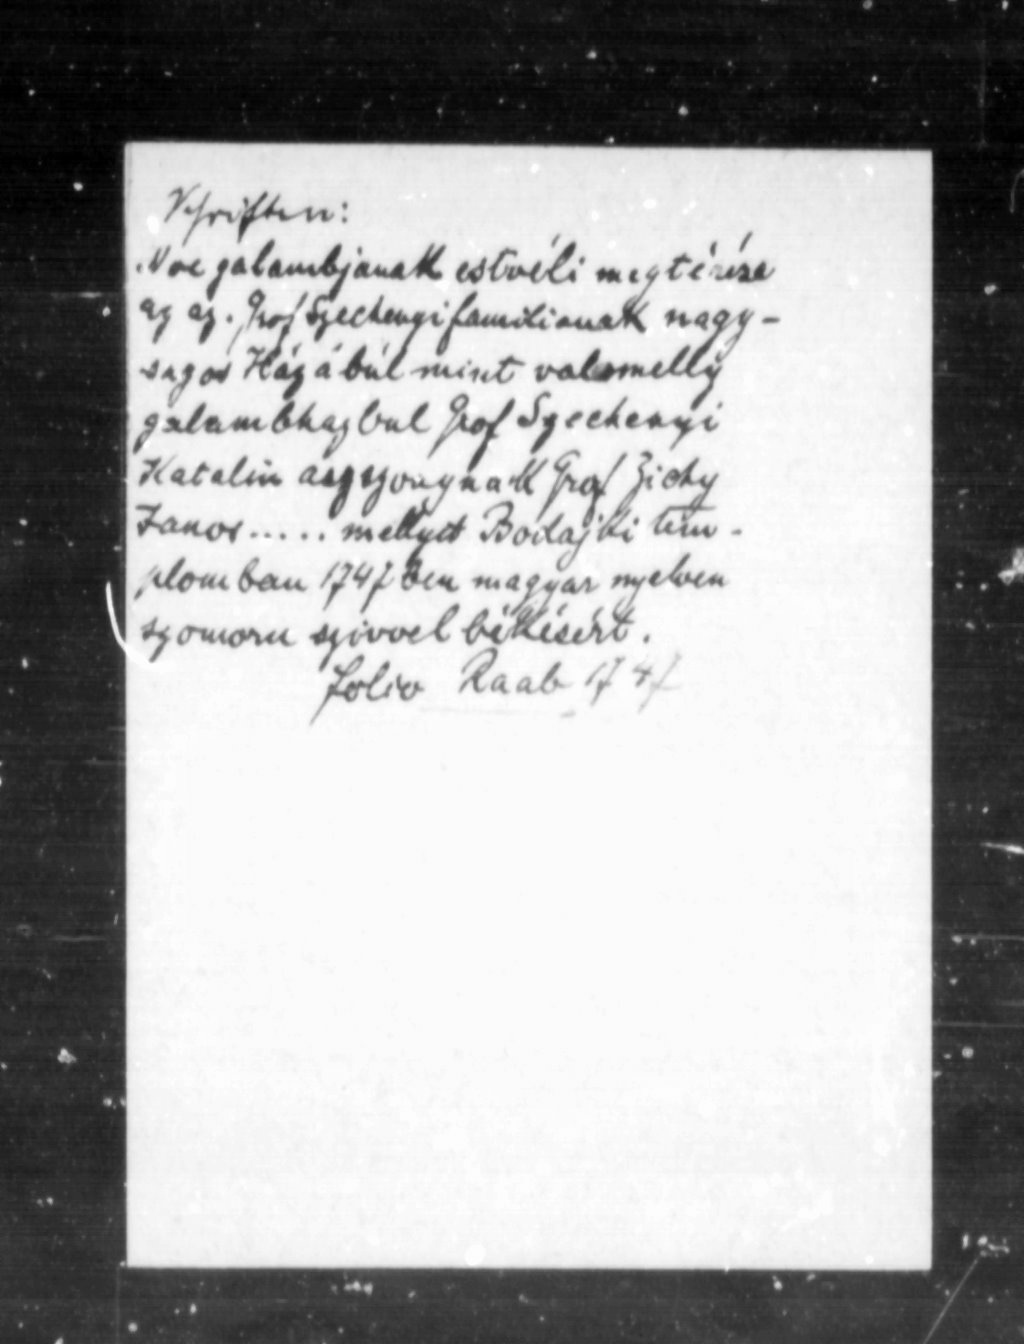 Schriften:
Noe galambjanak estvéli megtérése
az az. Grof Szechenyi familianak nagy-
sagos Házábúl mint valamelly
galambhazbul Grof Szechenyi
Katalin aszszonynak Grof Zichy
Janos ..... mellyet Bodajki tem-
plomban 1747 ben magyar nyelven
szomoru szivvel békésért.
folio Raab 1747